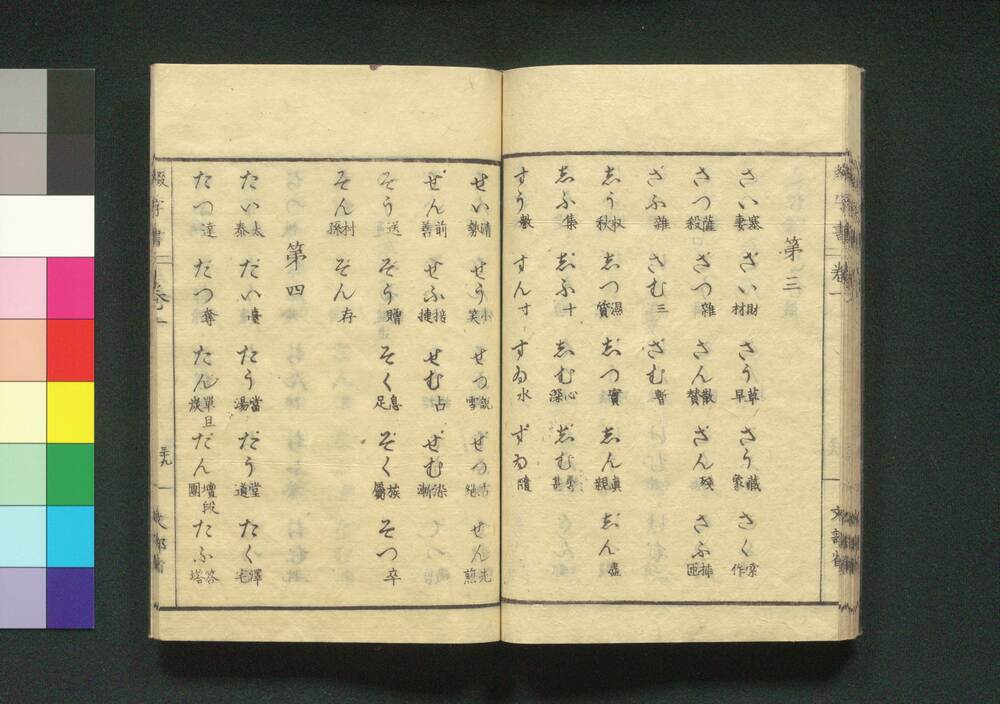 第三
さい 塞妻 ざい 財材 さう 草早 ざう 藏象 さく 索作
さつ 薩殺 ざつ 雜 さん 散贊 ざん 殘 さふ 挿匝
ざふ 雜 さむ 三 ざむ 暫
しう 収秋 しつ 濕質 じつ 實 しん 眞親 じん 盡
しふ 集 じふ 十 しむ 心深 じむ 甚
すう 數 すん 寸 すゐ 水 ずゐ 隨
せい 請勢 せう 小笑 せつ 説雪 ぜつ 舌絕 せん 先煎
ぜん 前善 せふ 接捷 せむ 占 ぜむ 染漸
そう 送 ぞう 贈 そく 息足 ぞく 族屬 そつ 卒
そん 村孫 ぞん 存
第四
たい 太泰 だい 臺 たう 當湯 だう 堂道 たく 擇宅
たつ 達 だつ 奪 たん 單旦炭 だん 壇段團 たふ 答塔
綴字書 卷一
三十九
文部省